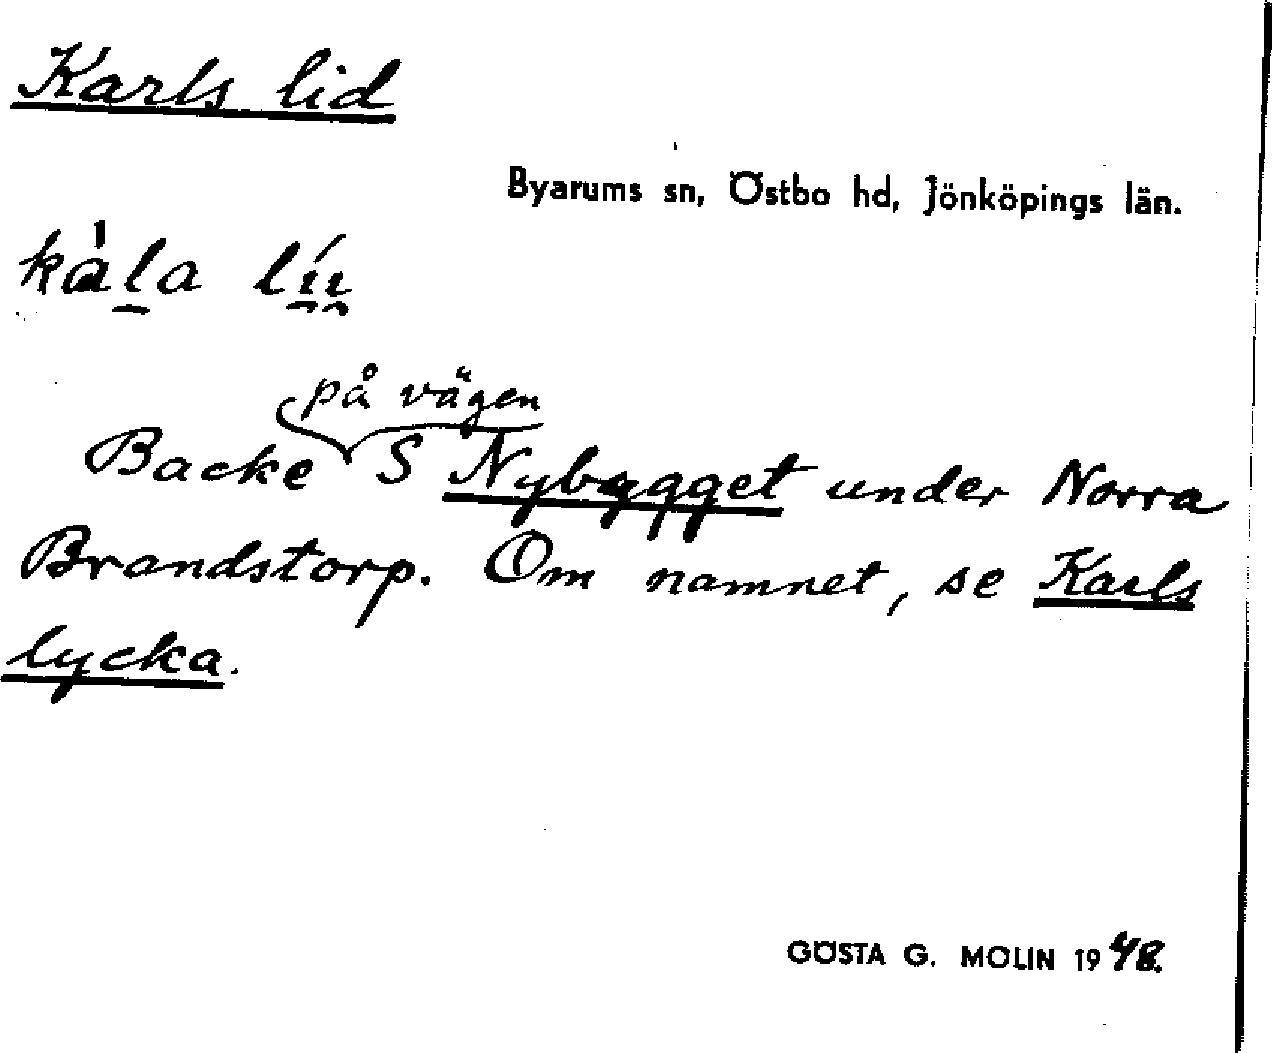 Karls lid
Byarums sn, Östbo hd, Jönköpings län.
kàla líi
på vägen
Backe S Nybygget under Norra
Brandstorp. Om namnet, se Karls
lycka.
GÖSTA G. MOLIN 1948.